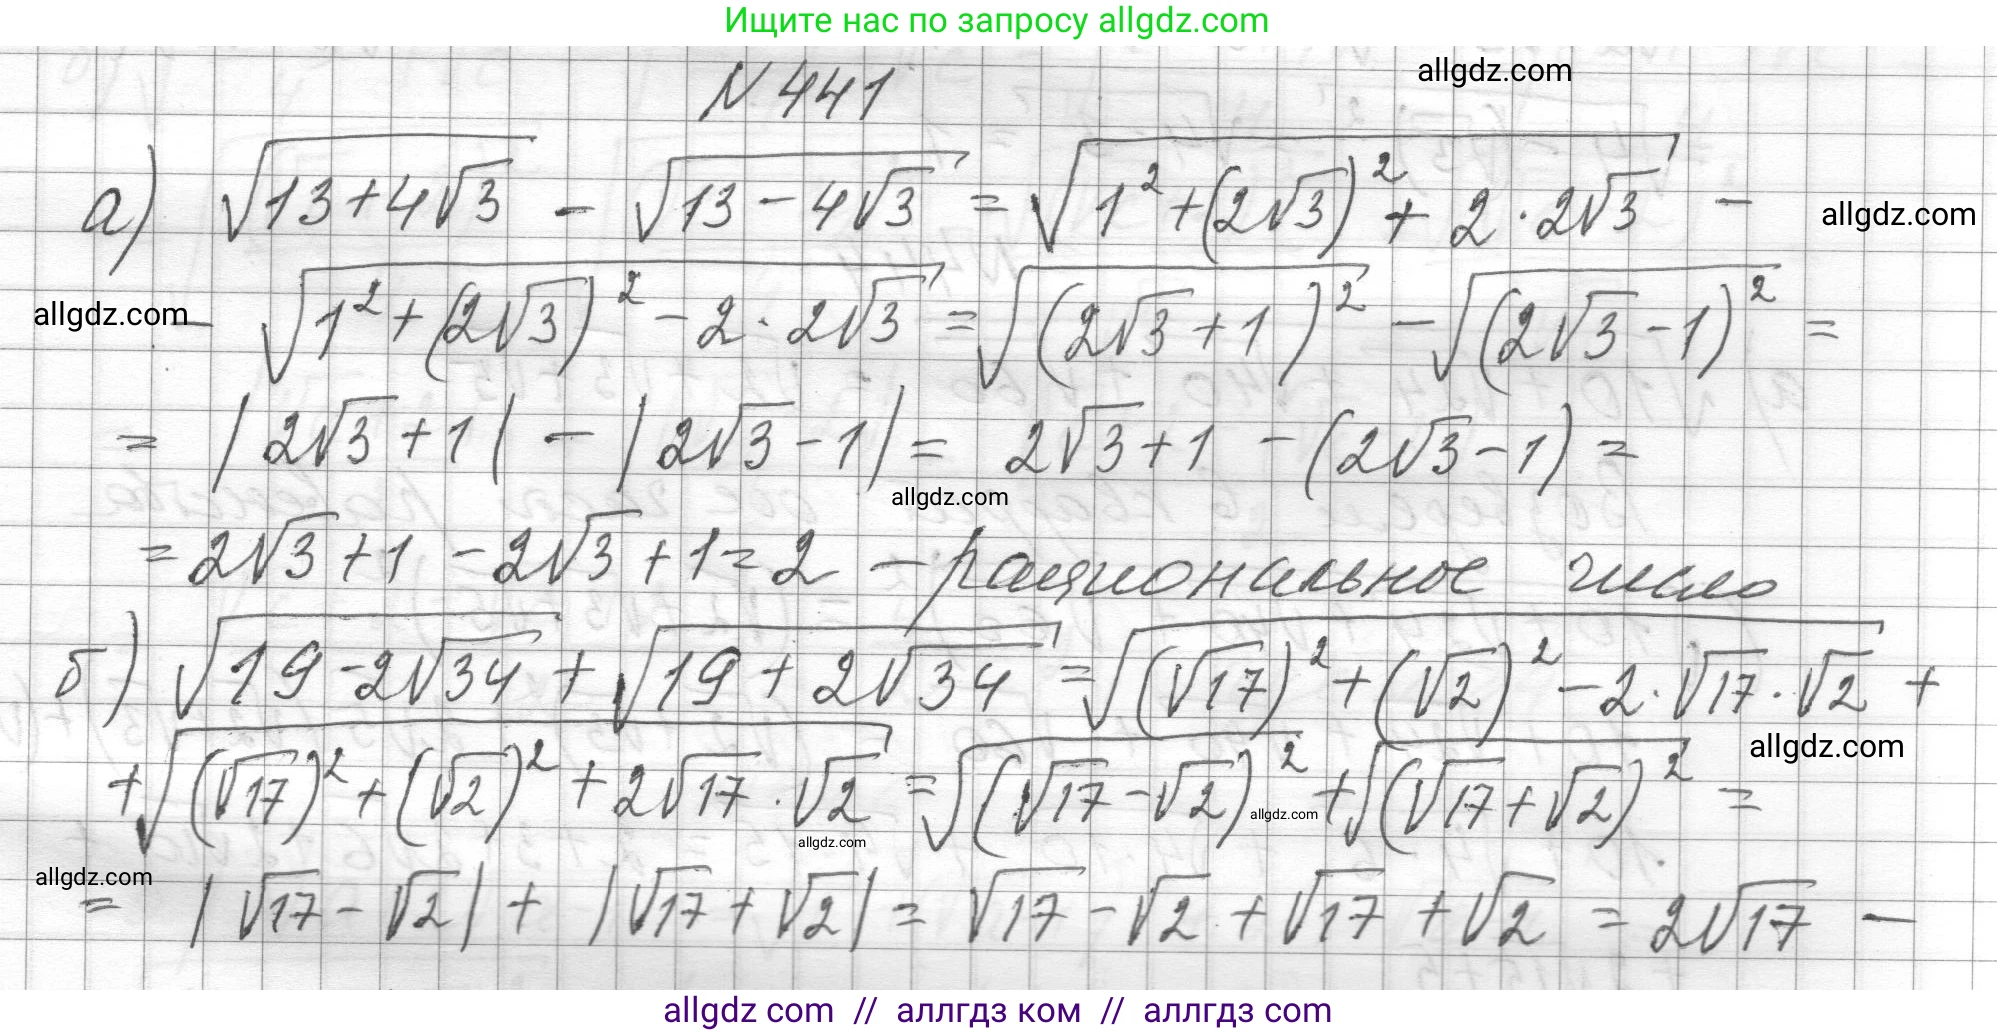 Ищите нас по запросу allgdz.com
allgdz.com
N 441
а) √(13+4√3) − √(13−4√3) = √(1²+(2√3)²+2·2√3) −
allgdz.com
allgdz.com
− √(1²+(2√3)²−2·2√3) = √((2√3+1)²) − √((2√3−1)²) =
= |2√3+1| − |2√3−1| = 2√3+1 − (2√3−1) =
allgdz.com
= 2√3+1 −2√3+1 = 2 — рациональное число
б) √(19−2√34) + √(19+2√34) = √((√17)²+(√2)²−2·√17·√2) +
allgdz.com
+ √((√17)²+(√2)²+2√17·√2) = √((√17−√2)²) + √((√17+√2)²) =
allgdz.com
allgdz.com
allgdz.com
= |√17−√2| + |√17+√2| = √17−√2+√17+√2 = 2√17 —
allgdz com // аллгдз ком // аллгдз.com